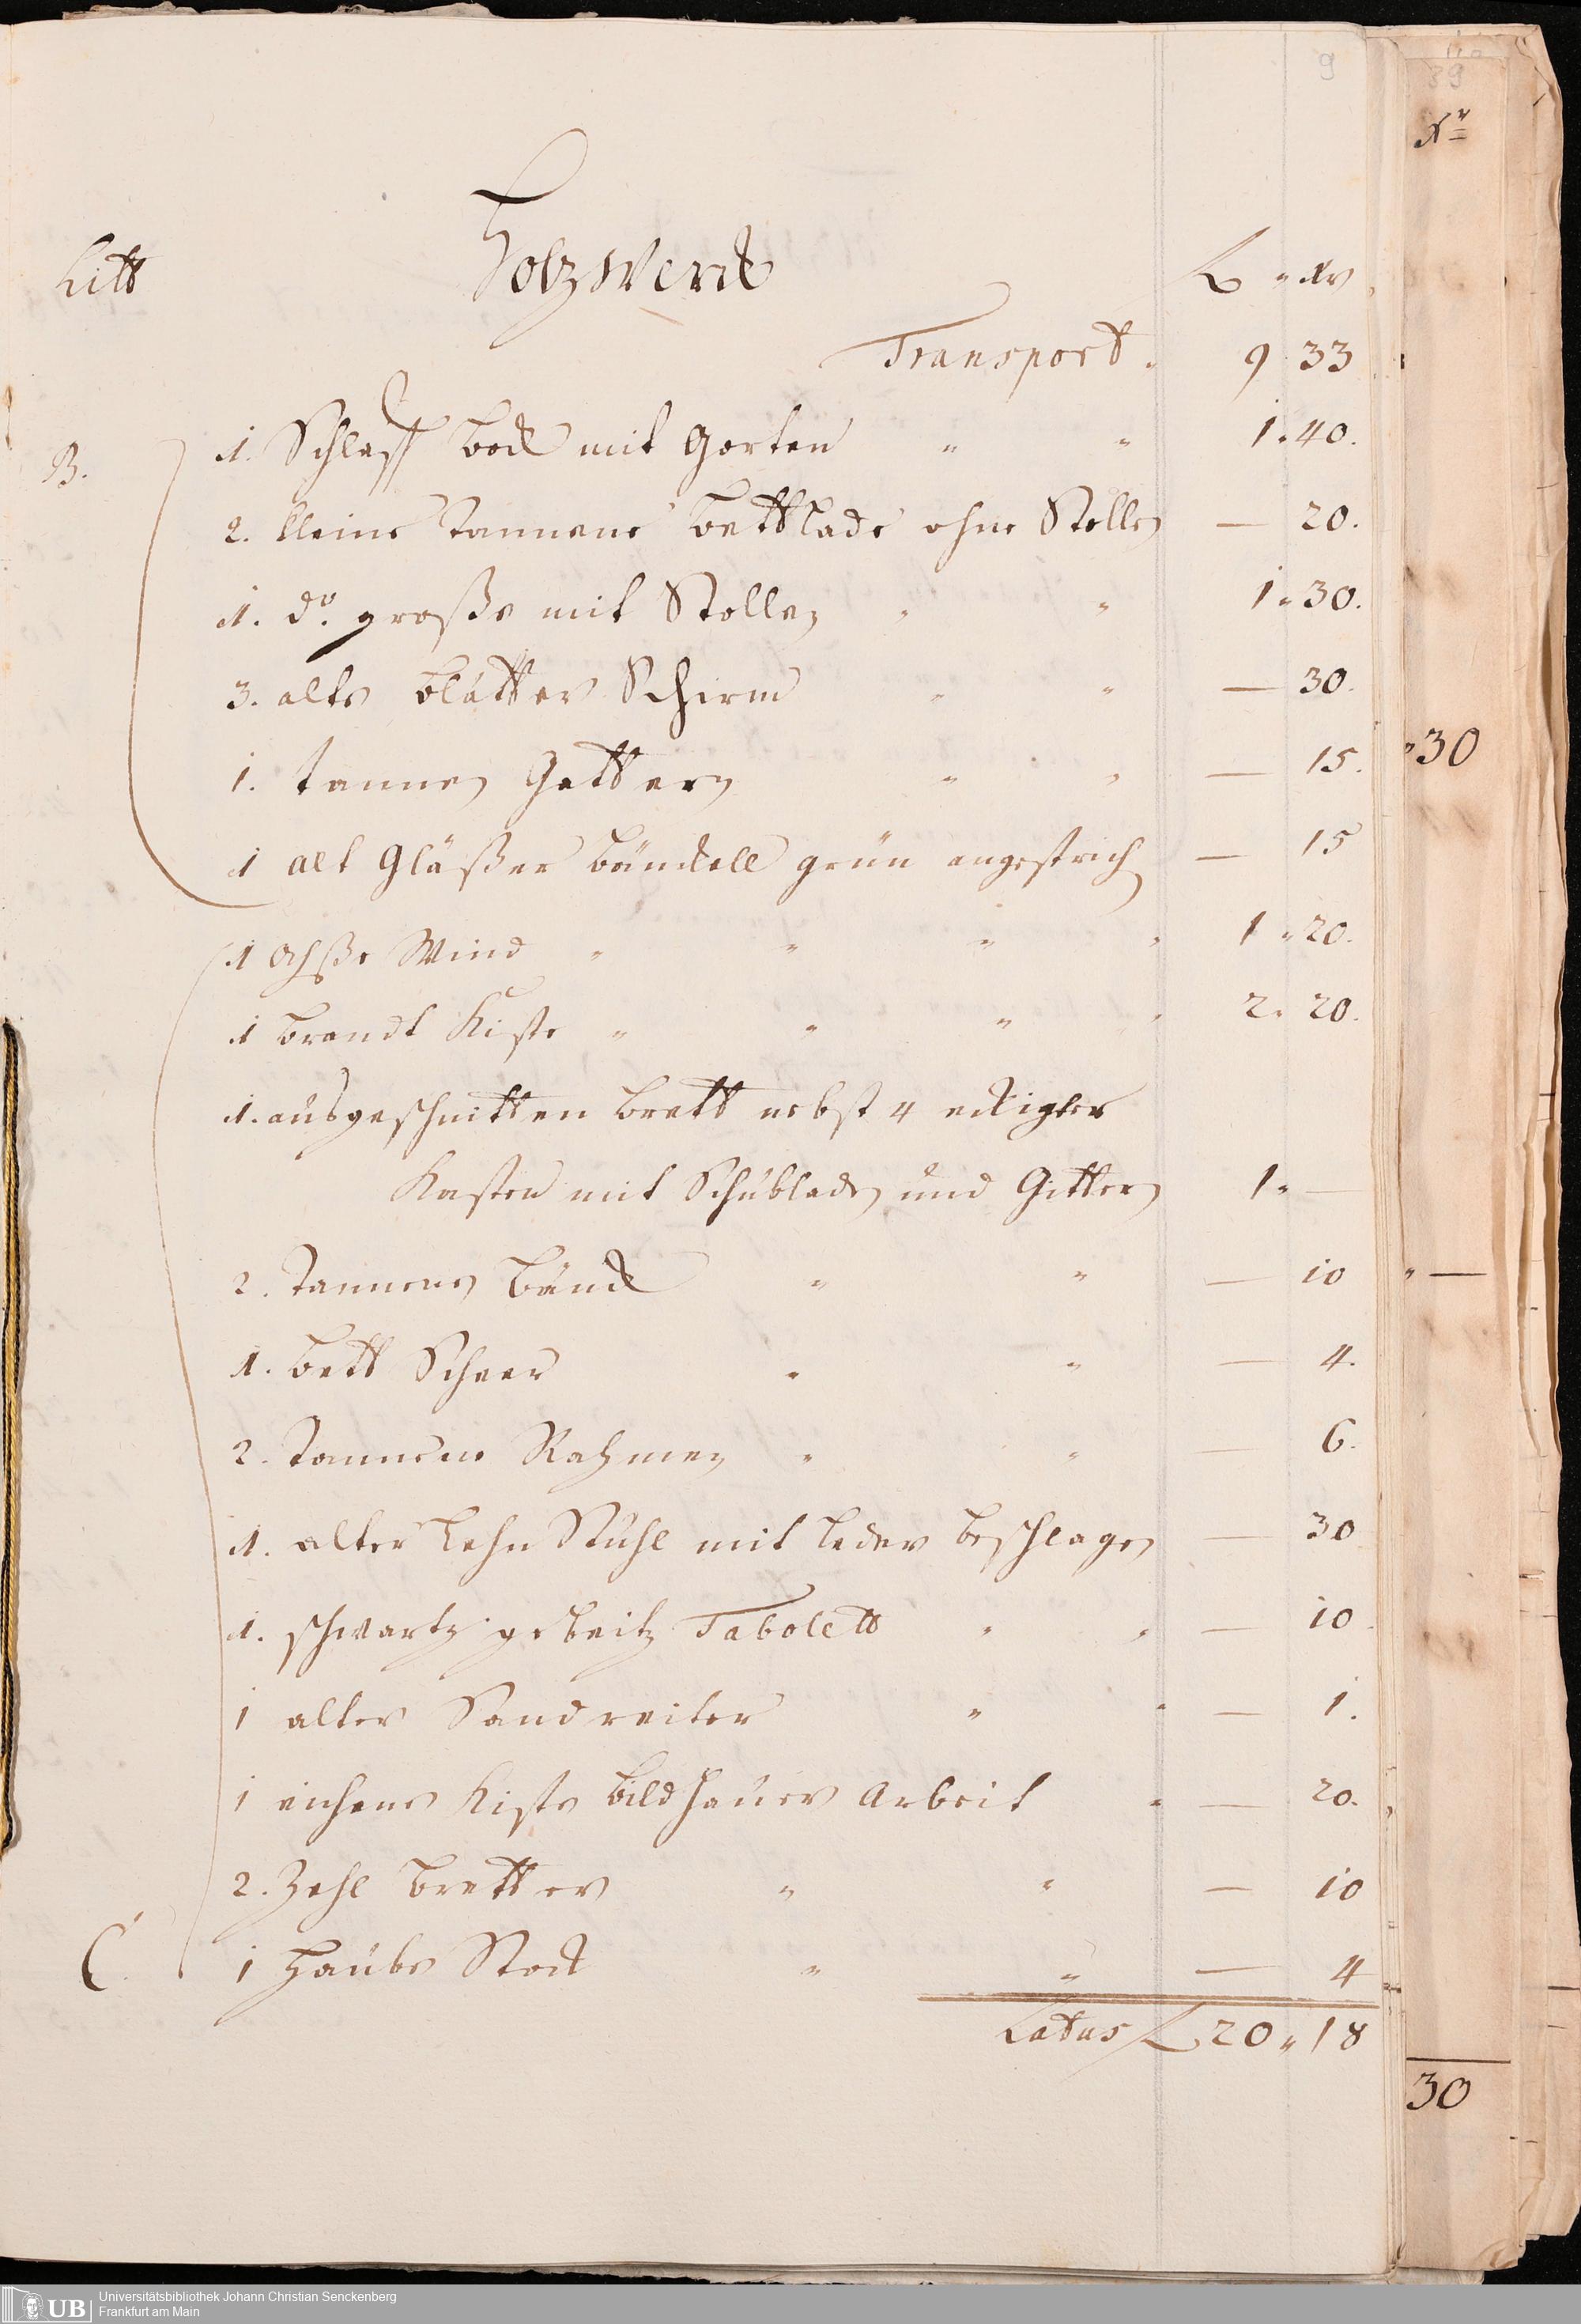 9
Litt Holzwerck f " xr
Transport " 9 33
B. 1. Schlaff bock mit Gorten " " 1 " 40.
2. kleine Tannene bettlade ohne Stollen — 20.
1. do. große mit Stollen " " 1 " 30.
3. alte blätter Schirm " " — 30.
1. tannen Gattern " " — 15.
1 alt Gläßer bänckell grün angestrich — 15
1 Achße Wind " " " " 1 " 20.
1 brandt Kiste " " " " 2 " 20.
1. ausgeschnitten brett nebst 4 eckigter
Kasten mit Schubladen und Gittern 1 " —
2. Tannene bänck " " — 10
1. bett Scheer " " — 4.
2. Tannene Rahmen " " — 6.
1. alter Lehn Stuhl mit leder beschlagen — 30
1. schwartz gebeitz Tabolett " " — 10
1 alter Sandreiter " " — 1.
1 eichene Kiste bildhauer Arbeit " — 20.
2. Zahl bretter " " — 10
C. 1 Haube Stock " " — 4
Latus f 20 " 18
39
Xr
" 30
" —
30
UB Universitätsbibliothek Johann Christian Senckenberg
Frankfurt am Main